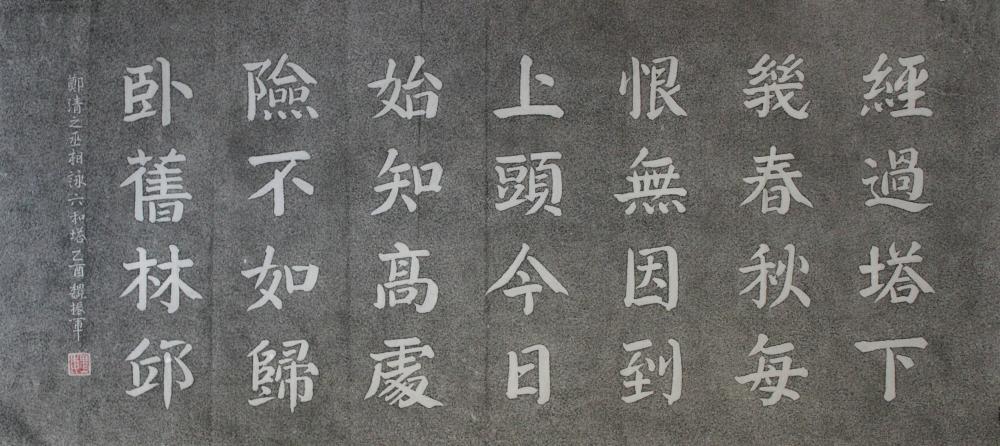 經過塔下
幾春秋每
恨無因到
上頭今日
始知高處
險不如歸
卧舊林邱
鄭清之丞相詠六和塔乙酉魏振軍